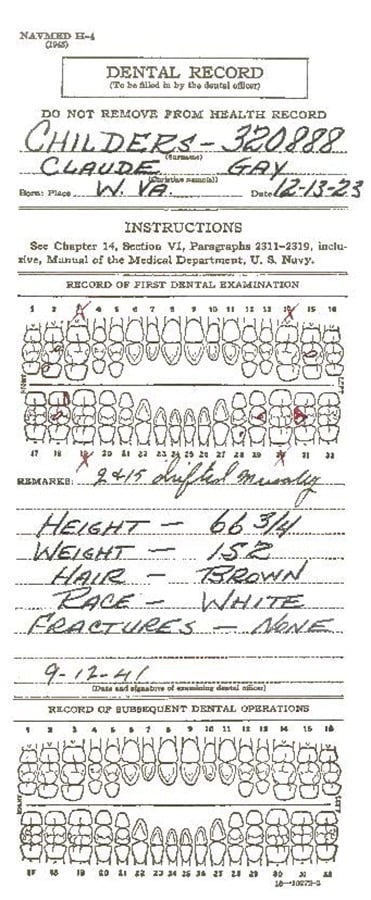 NAVMED H-4
DENTAL RECORD
(To be filled in by the dental officer)
DO NOT REMOVE FROM HEALTH RECORD
CHILDERS – 320888
(Surname)
CLAUDE GAY
(Christian name(s))
Born: Place W. VA. Date 12-13-23
INSTRUCTIONS
See Chapter 14, Section VI, Paragraphs 2311–2319, inclu-
sive, Manual of the Medical Department, U. S. Navy.
RECORD OF FIRST DENTAL EXAMINATION
1 2 3 4 5 6 7 8 9 10 11 12 13 14 15 16
RIGHT LEFT
17 18 19 20 21 22 23 24 25 26 27 28 29 30 31 32
REMARKS: 2 & 15 drifted mesially
HEIGHT – 66 3/4
WEIGHT – 152
HAIR – BROWN
RACE – WHITE
FRACTURES – NONE
9-12-41
(Date and signature of examining dental officer)
RECORD OF SUBSEQUENT DENTAL OPERATIONS
1 2 3 4 5 6 7 8 9 10 11 12 13 14 15 16
RIGHT LEFT
17 18 19 20 21 22 23 24 25 26 27 28 29 30 31 32